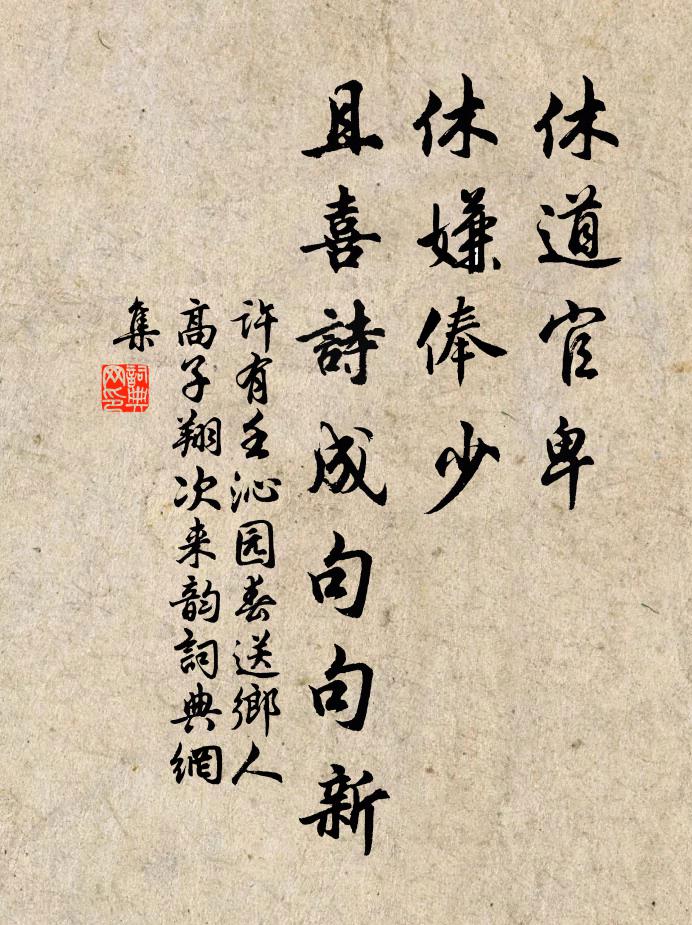 休道官卑
休嫌俸少
且喜詩成句句新
许有壬沁园春送鄉人
高子翔次来韵詞典網
集
詞典
网印